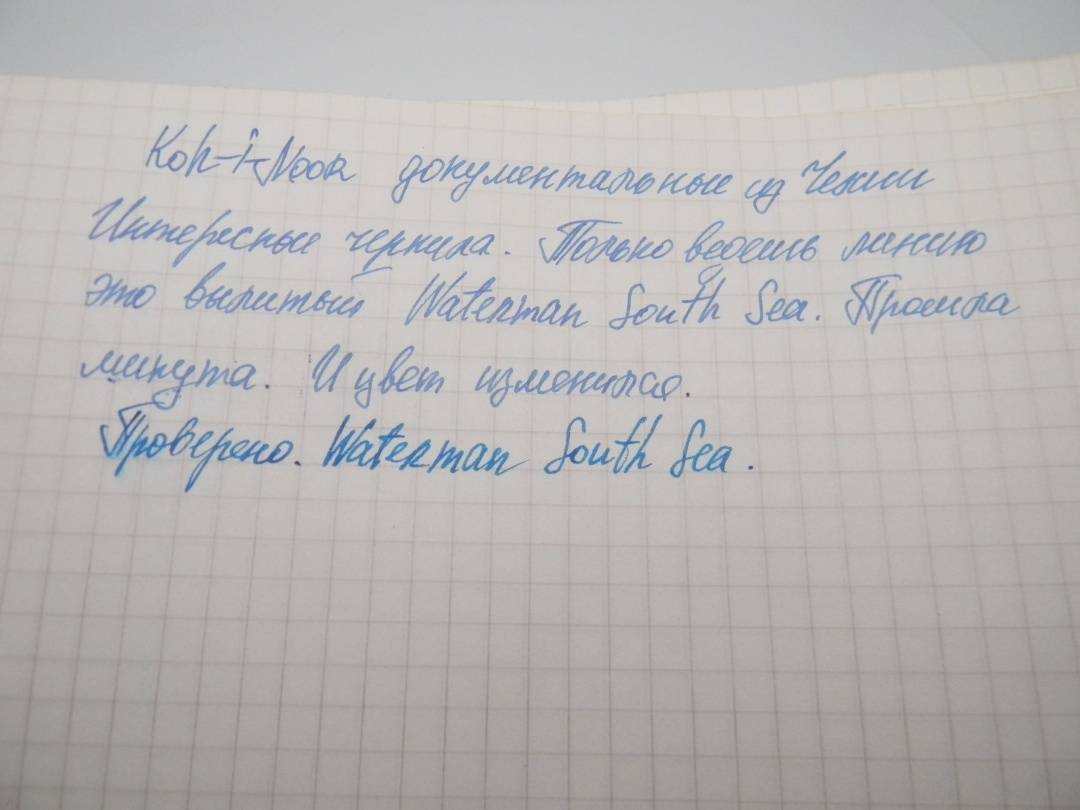 Koh-i-Noor документальные из Чехии
Интересные чернила. Только ведешь линию
это вылитый Waterman South Sea. Прошла
минута. И цвет изменился.
Проверено. Waterman South Sea.